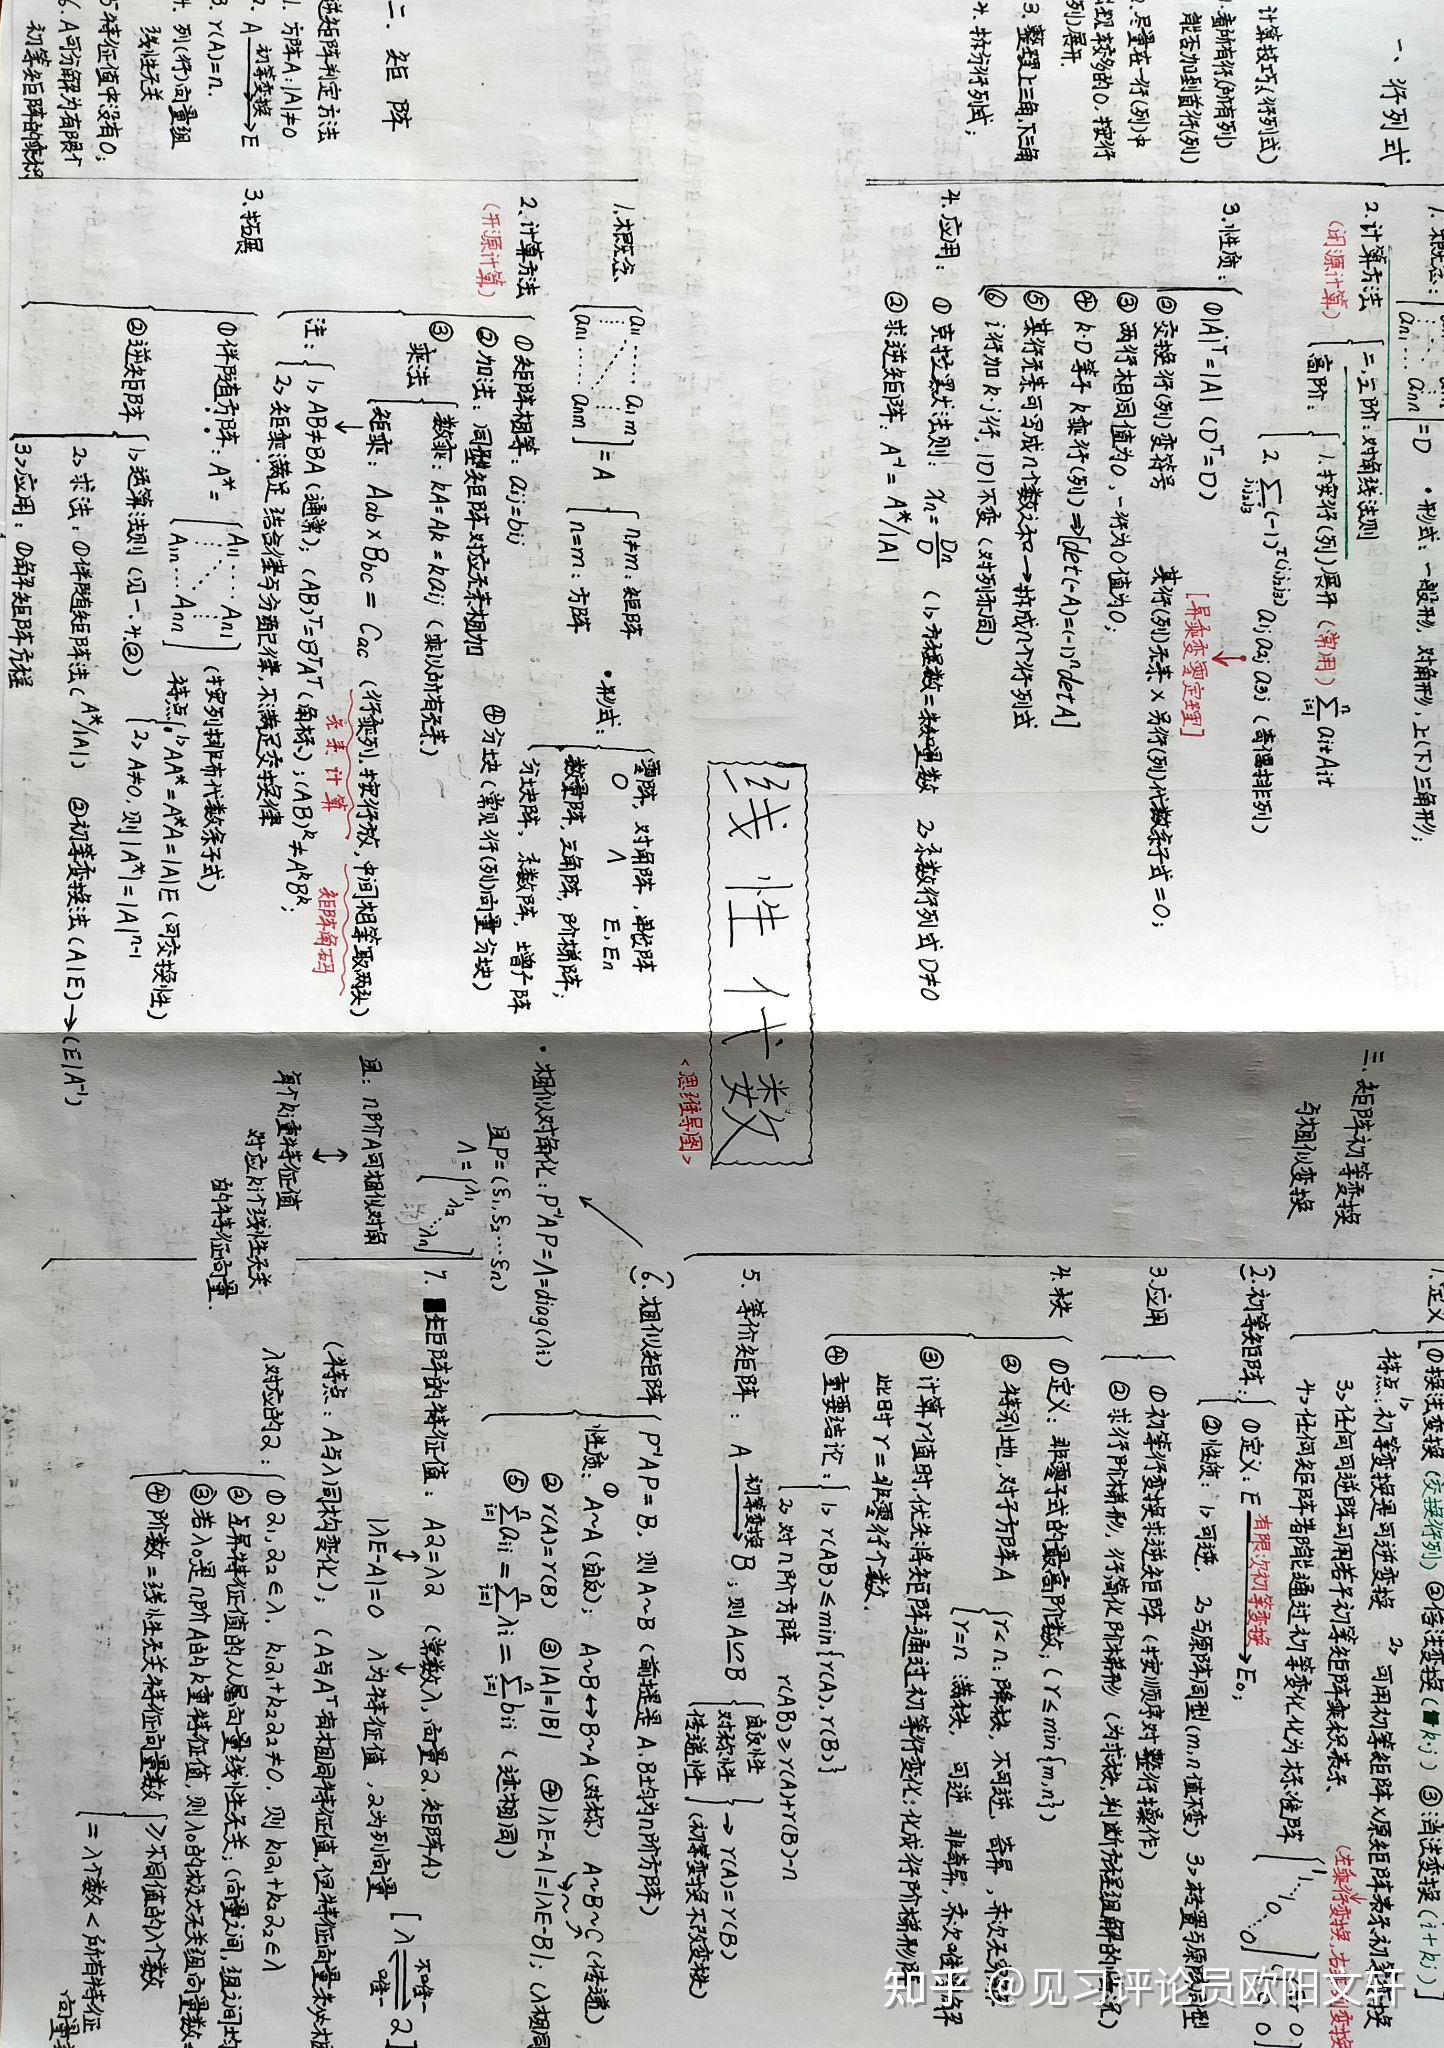 一、行列式
计算技巧(行列式)
1.看所有行(所有列)
能否加到首行(列)
2.尽量在一行(列)中
出现较多的0,按行
(列)展开.
3.整理上三角,下三角
4.拆分行列式;
1.概念:
an1 … ann
=D
•形式:一般形,对角形,上(下)三角形;
2.计算方法
(闭源计算)
二,三阶:对角线法则
高阶:
1.按行(列)展开(常用) ∑aitAit
2. ∑(-1)^τ(j1j2j3) a1j a2j a3j (奇偶排列)
3.性质:
①|A|ᵀ=|A| (Dᵀ=D)
[异乘变零定理]
②交换行(列)变符号
某行(列)元素×另行(列)代数余子式=0;
③两行相同值为0,一行为0值为0;
④k·D等于k乘行(列)⇒[det(-A)=(-1)ⁿdetA]
⑤某行元素可写成n个数之和→拆成n个行列式
⑥i行加k·j行,|D|不变(对列亦同)
4.应用:
①克拉默法则: xn=Dn/D (1>方程数=未知量数 2>系数行列式D≠0
②求逆矩阵: A⁻¹=A*/|A|
线性代数
<思维导图>
二.矩阵
逆矩阵判定方法
1.方阵A:|A|≠0
2. A 初等变换→E
3. r(A)=n.
4.列(行)向量组
线性无关
5特征值中没有0;
6.A可分解为有限个
初等矩阵的乘积
1.概念
a11 … a1m
an1 … anm
=A
n≠m:矩阵
n=m:方阵
•形式:
零阵,对角阵,单位阵
O Λ E,En
数量阵,三角阵,阶梯阵;
分块阵,系数阵,增广阵
2.计算方法
(开源计算)
①矩阵相等:aij=bij
②加法:同型矩阵对应元素相加
④分块(常见行(列)向量分块)
③乘法
数乘:kA=Ak=kaij (乘以所有元素)
矩乘:Aab×Bbc=Cac (行乘列,按行放,中间相等取两头)
元素计算 矩阵角码
注:
1>AB≠BA(通常);(AB)ᵀ=BᵀAᵀ(角标);(AB)ᵏ≠AᵏBᵏ;
2>矩乘满足结合律与分配律,不满足交换律
3.拓展
①伴随方阵:A*=
A11 … An1
A1n … Ann
(按列排布代数余子式)
特点
1>AA*=A*A=|A|E(可交换性)
2>A≠0,则|A*|=|A|ⁿ⁻¹
②逆矩阵
1>运算法则(见一.4.②)
2>求法:①伴随矩阵法(A*/|A|) ②初等变换法(A|E)→(E|A⁻¹)
3>应用:①解矩阵方程
三.矩阵初等变换
与相似变换
1.定义
①换法变换(交换行列)②倍法变换(k·j)③消法变换(i+kj)
(左乘行变换,右乘列变换)
特点:1>初等变换是可逆变换 2>可用初等矩阵×原矩阵表示初等变换
3>任何可逆阵可用若干初等矩阵乘积表示、
4>任何矩阵皆能通过初等变化化为标准阵
2.初等矩阵:
①定义:E 有限次初等变换→E0;
②性质:1>可逆, 2>与原阵同型(m,n值不变) 3>转置与原阵同型
3.应用
①初等行变换求逆矩阵(按顺序对整行操作)
②求行阶梯形,行简化阶梯形(为求秩,判断方程组解的情况)
4.秩
①定义:非零子式的最高阶数;(r≤min{m,n})
②特别地,对子方阵A
r<n:降秩,不可逆,奇异,
r=n 满秩,可逆,非奇异,
③计算r值时,优先将矩阵通过初等行变化;化成行阶梯形阵
此时r=非零行个数.
④重要结论:
1>r(AB)≤min{r(A),r(B)}
2>对n阶方阵 r(AB)≥r(A)+r(B)-n
5.等价矩阵:A 初等变换→B;则A≌B
自反性
对称性
传递性
→r(A)=r(B)
(初等变换不改变秩)
6.相似矩阵
P⁻¹AP=B,则A~B(前提是A,B均为n阶方阵)
性质:①A~A(自反);A~B↔B~A(对称) A~B~C(传递)
②r(A)=r(B) ③|A|=|B| ④|λE-A|=|λE-B|;(λ相同
⑤∑aii=∑λi=∑bii (迹相同)
•相似对角化:P⁻¹AP=Λ=diag(λi)
且P=(ξ1,ξ2…ξn)
Λ=(λ1 λ2 … λn)
且:n阶A可相似对角
↕
每个ki重特征值
对应ki个线性无关
的特征向量.
7.矩阵的特征值:Aα=λα (常数λ,向量α,矩阵A)
|λE-A|=0 λ为特征值,α为列向量
[λ 不唯一 唯一 α]
(特点:A与λ同构变化);(A与Aᵀ有相同特征值,但特征向量未必相
λ对应的α:
①α1,α2∈λ,k1α1+k2α2≠0,则k1α1+k2α2∈λ
②互异特征值的从属向量线性无关;(向量之间,组之间均
③若λ0是n阶A的k重特征值,则λ0的极大无关组向量数≤
④阶数=线性无关特征向量数
≥不同值的λ个数
=λ个数<所有特征
向量
知乎 @见习评论员欧阳文轩